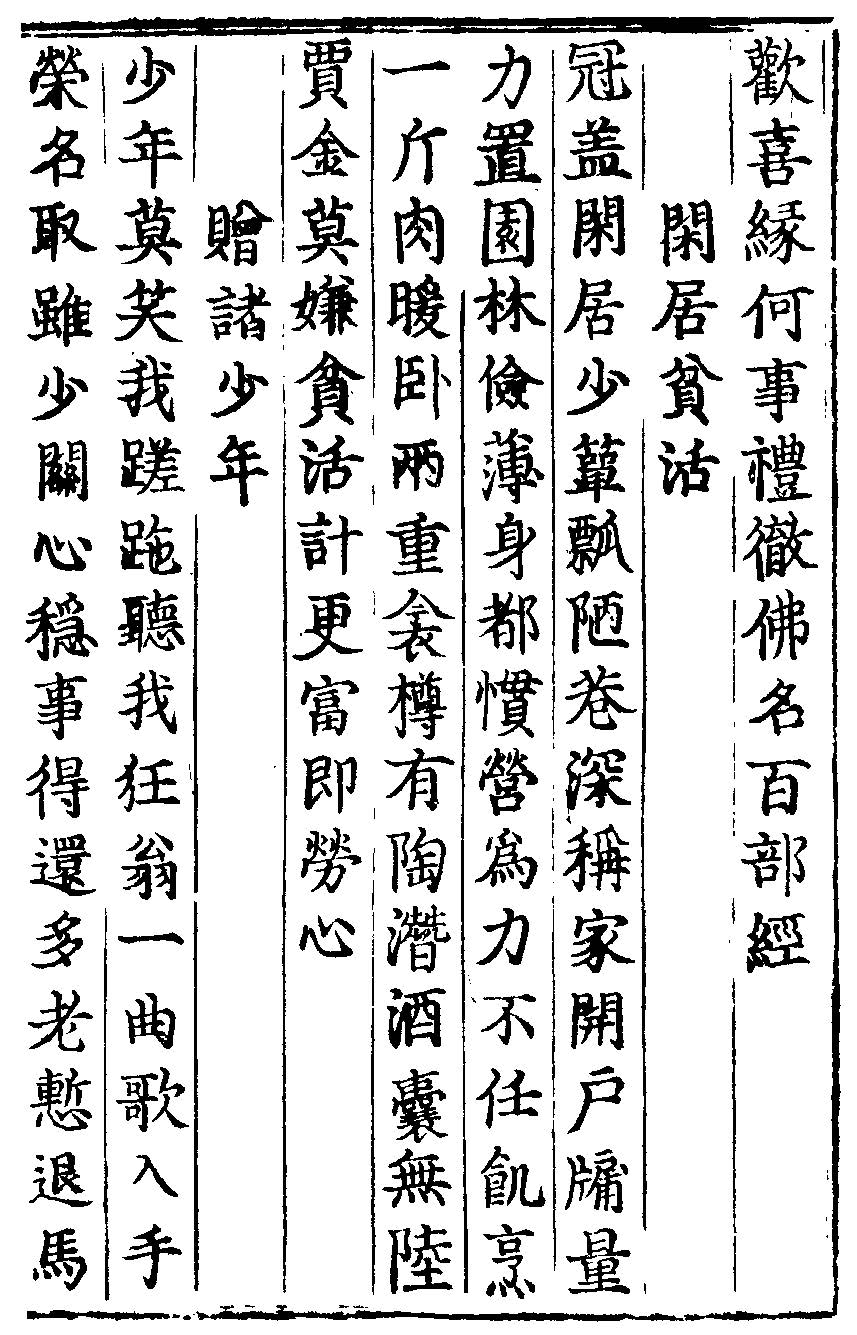 歡喜緣何事禮徹佛名百部經
閑居貧活
冠盖閑居少簞瓢陋巷深稱家開戶牖量
力置園林儉薄身都慣營爲力不任飢烹
一斤肉暖卧兩重衾樽有陶潛酒囊無陸
賈金莫嫌貧活計更富即勞心
贈諸少年
少年莫笑我蹉跎聽我狂翁一曲歌入手
榮名取雖少關心穩事得還多老慙退馬